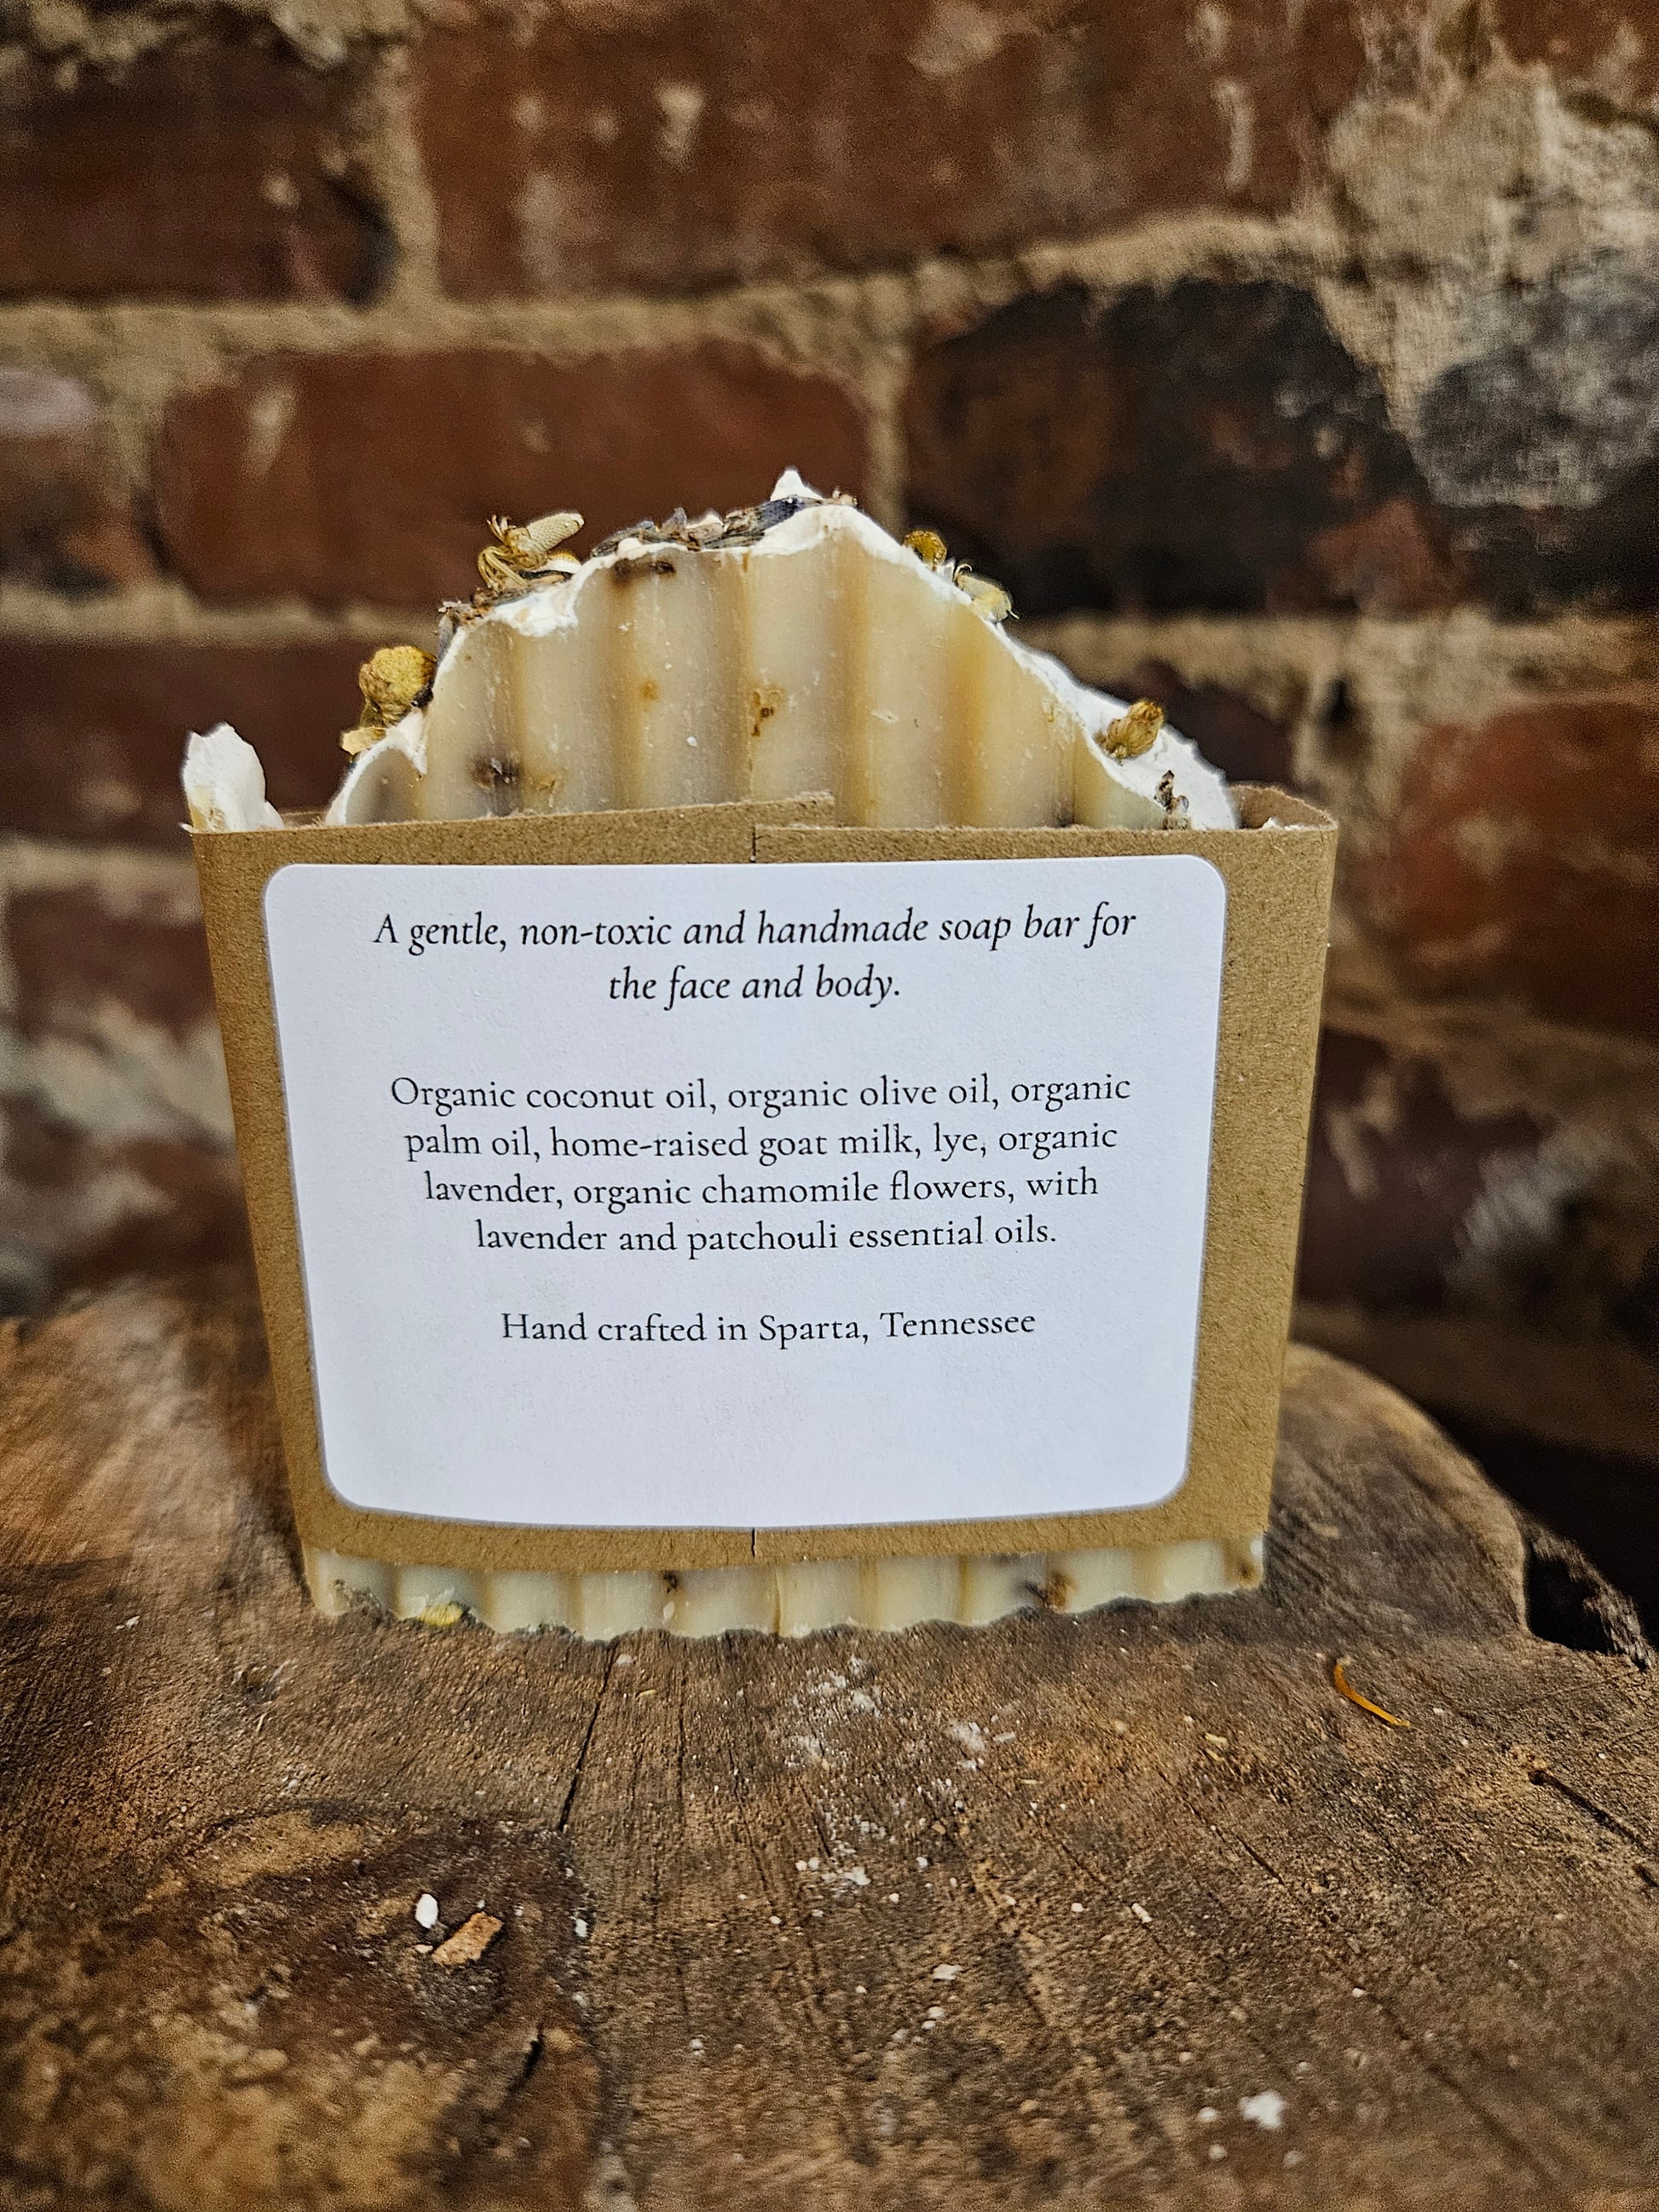 A gentle, non-toxic and handmade soap bar for
the face and body.
Organic coconut oil, organic olive oil, organic
palm oil, home-raised goat milk, lye, organic
lavender, organic chamomile flowers, with
lavender and patchouli essential oils.
Hand crafted in Sparta, Tennessee